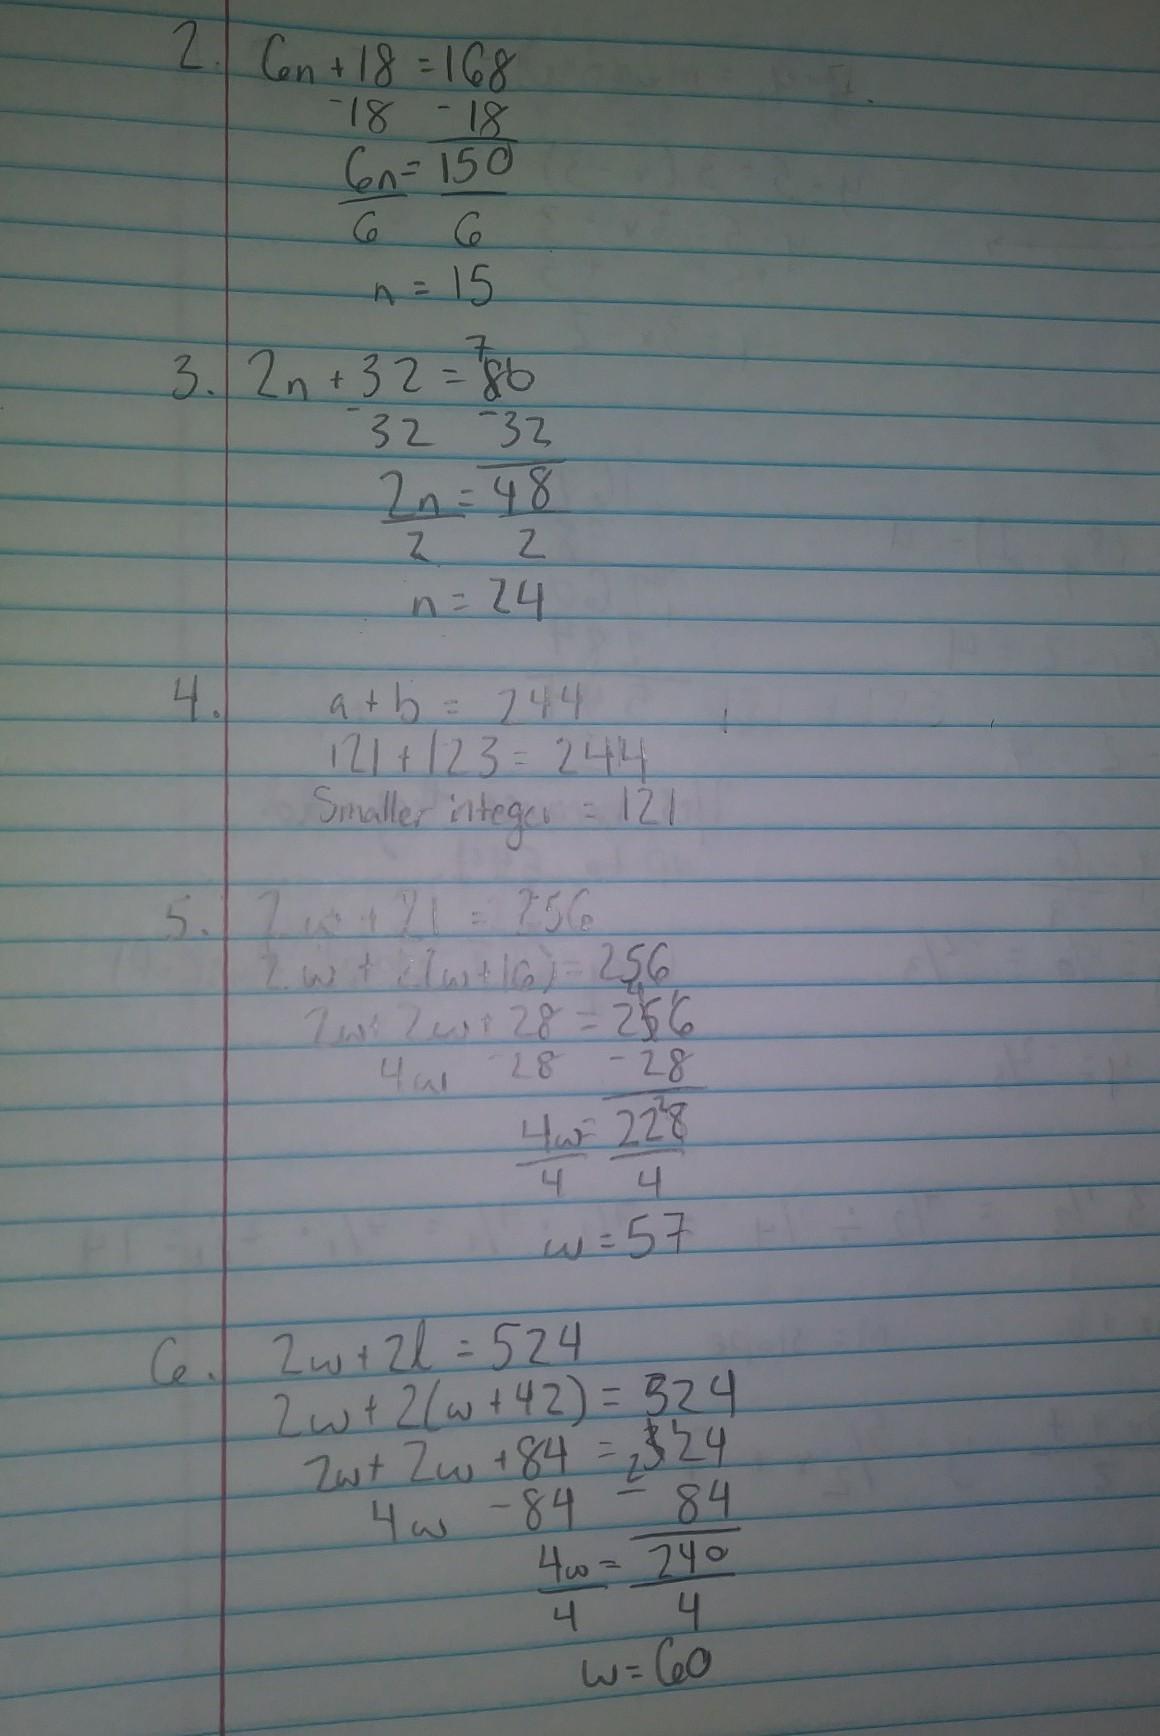 2. 6n + 18 = 168
-18 -18
6n = 150
6 6
n = 15
7
3. 2n + 32 = 86
-32 -32
2n = 48
2 2
n = 24
4. a + b = 244
121 + 123 = 244
Smaller integer = 121
5. 2w + 2l = 256
2w + 2(w+16) = 256
2w + 2w + 28 = 256
4w -28 -28
4w = 228
4 4
w = 57
6. 2w + 2l = 524
2w + 2(w + 42) = 324
2w + 2w + 84 = 324
4w -84 - 84
4w = 240
4 4
w = 60